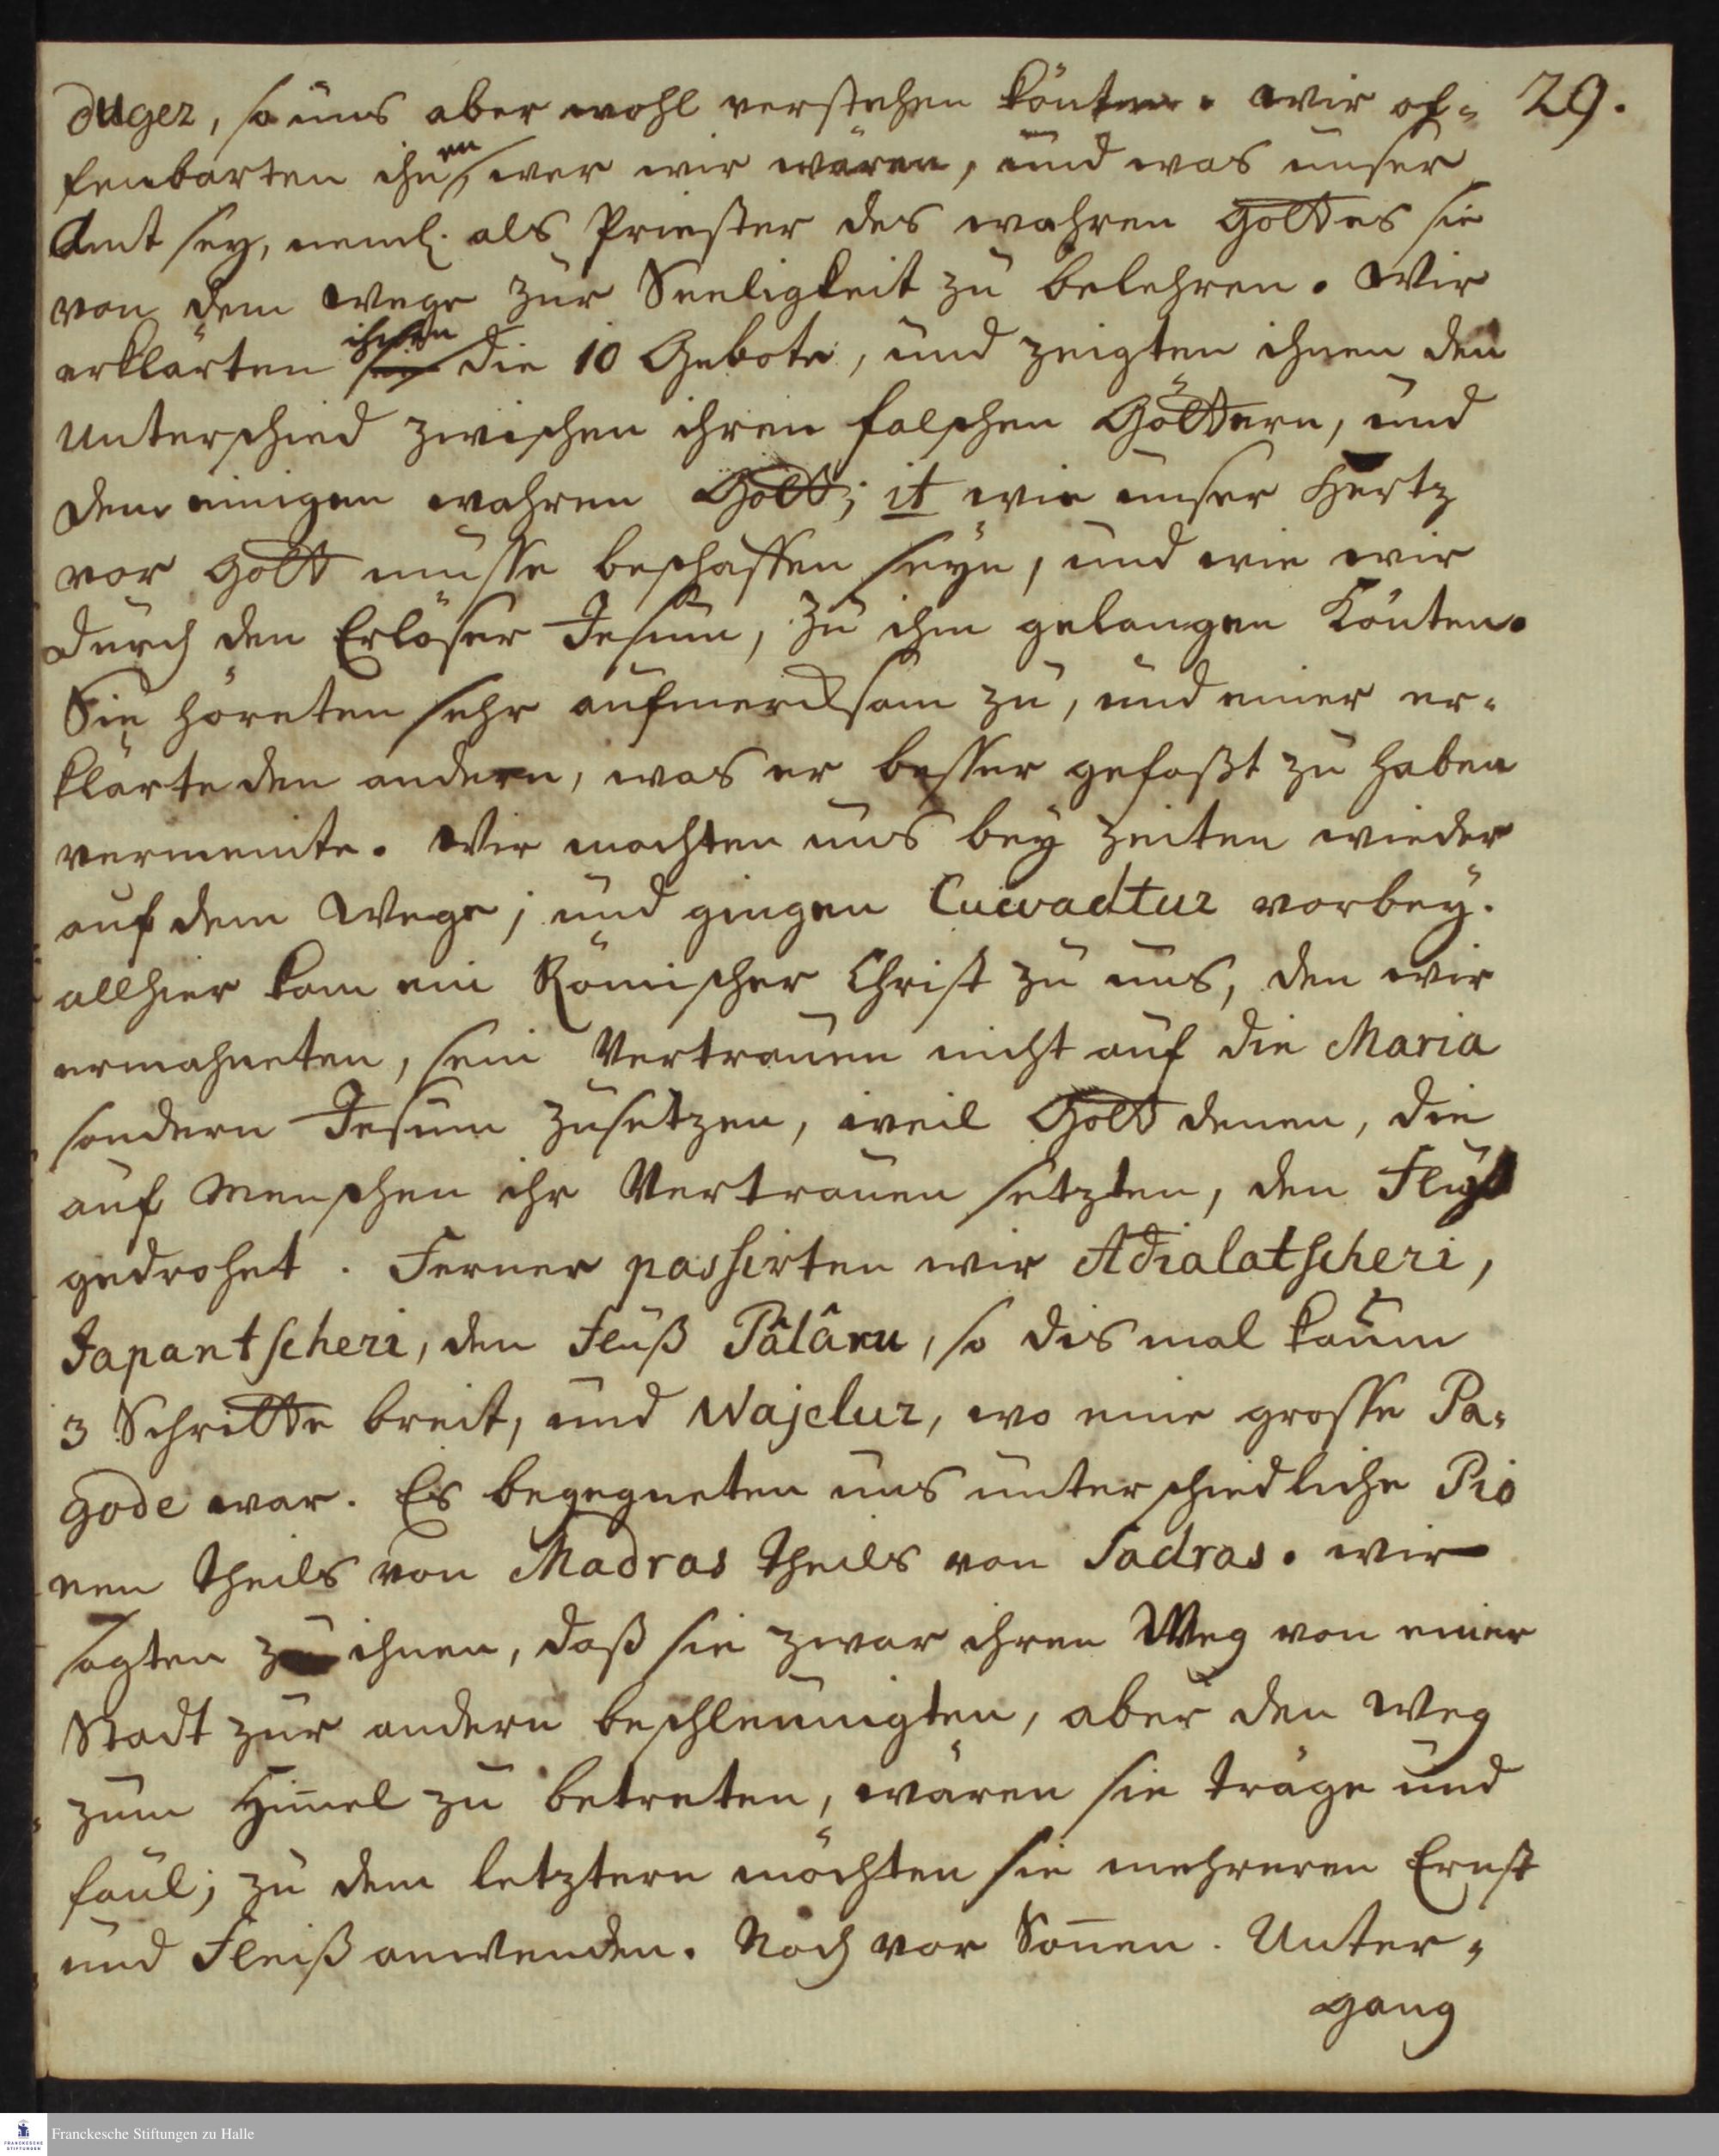 29.
duger, so uns aber wohl verstehen könten. Wir of-
fenbarten ihnen, wer wir wären, und was unser
Amt sey, neml. als Priester des wahren Gottes sie
von dem Wege zur Seeligkeit zu belehren. Wir
erklärten ihnen die 10 Gebote, und zeigten ihnen den
Unterschied zwischen ihren falschen Göttern, und
dem einigen wahren Gott; it wie unser Hertz
vor Gott müsse beschaffen seyn, und wie wir
durch den Erlöser Jesum, zu ihm gelangen könten.
Sie höreten sehr aufmercksam zu, und einer er-
klärte den andern, was er besser gefaßt zu haben
vermeinte. Wir machten uns bey Zeiten wieder
auf dem Wege; und gingen Cuwadtur vorbey.
allhier kam ein Römischer Christ zu uns, den wir
ermahneten, sein Vertrauen nicht auf die Maria
sondern Jesum zusetzen, weil Gott denen, die
auf Menschen ihr Vertrauen setzten, den Fluch
gedrohet. Ferner passirten wir Adialatscheri,
Japantscheri, den Fluß Pâlâru, so dis mal kaum
3 Schritte breit, und Wajelur, wo eine grosse Pa-
gode war. Es begegneten uns unterschiedliche Pio
nen theils von Madras theils von Sadras. wir
sagten zu ihnen, daß sie zwar ihren Weg von einer
Stadt zur andern beschleunigten, aber den Weg
zum Him̅el zu betreten, wären sie träge und
faul; zu dem letztern möchten sie mehreren Ernst
und Fleiß anwenden. Noch vor Son̅en. Unter-
gang
Franckesche Stiftungen zu Halle